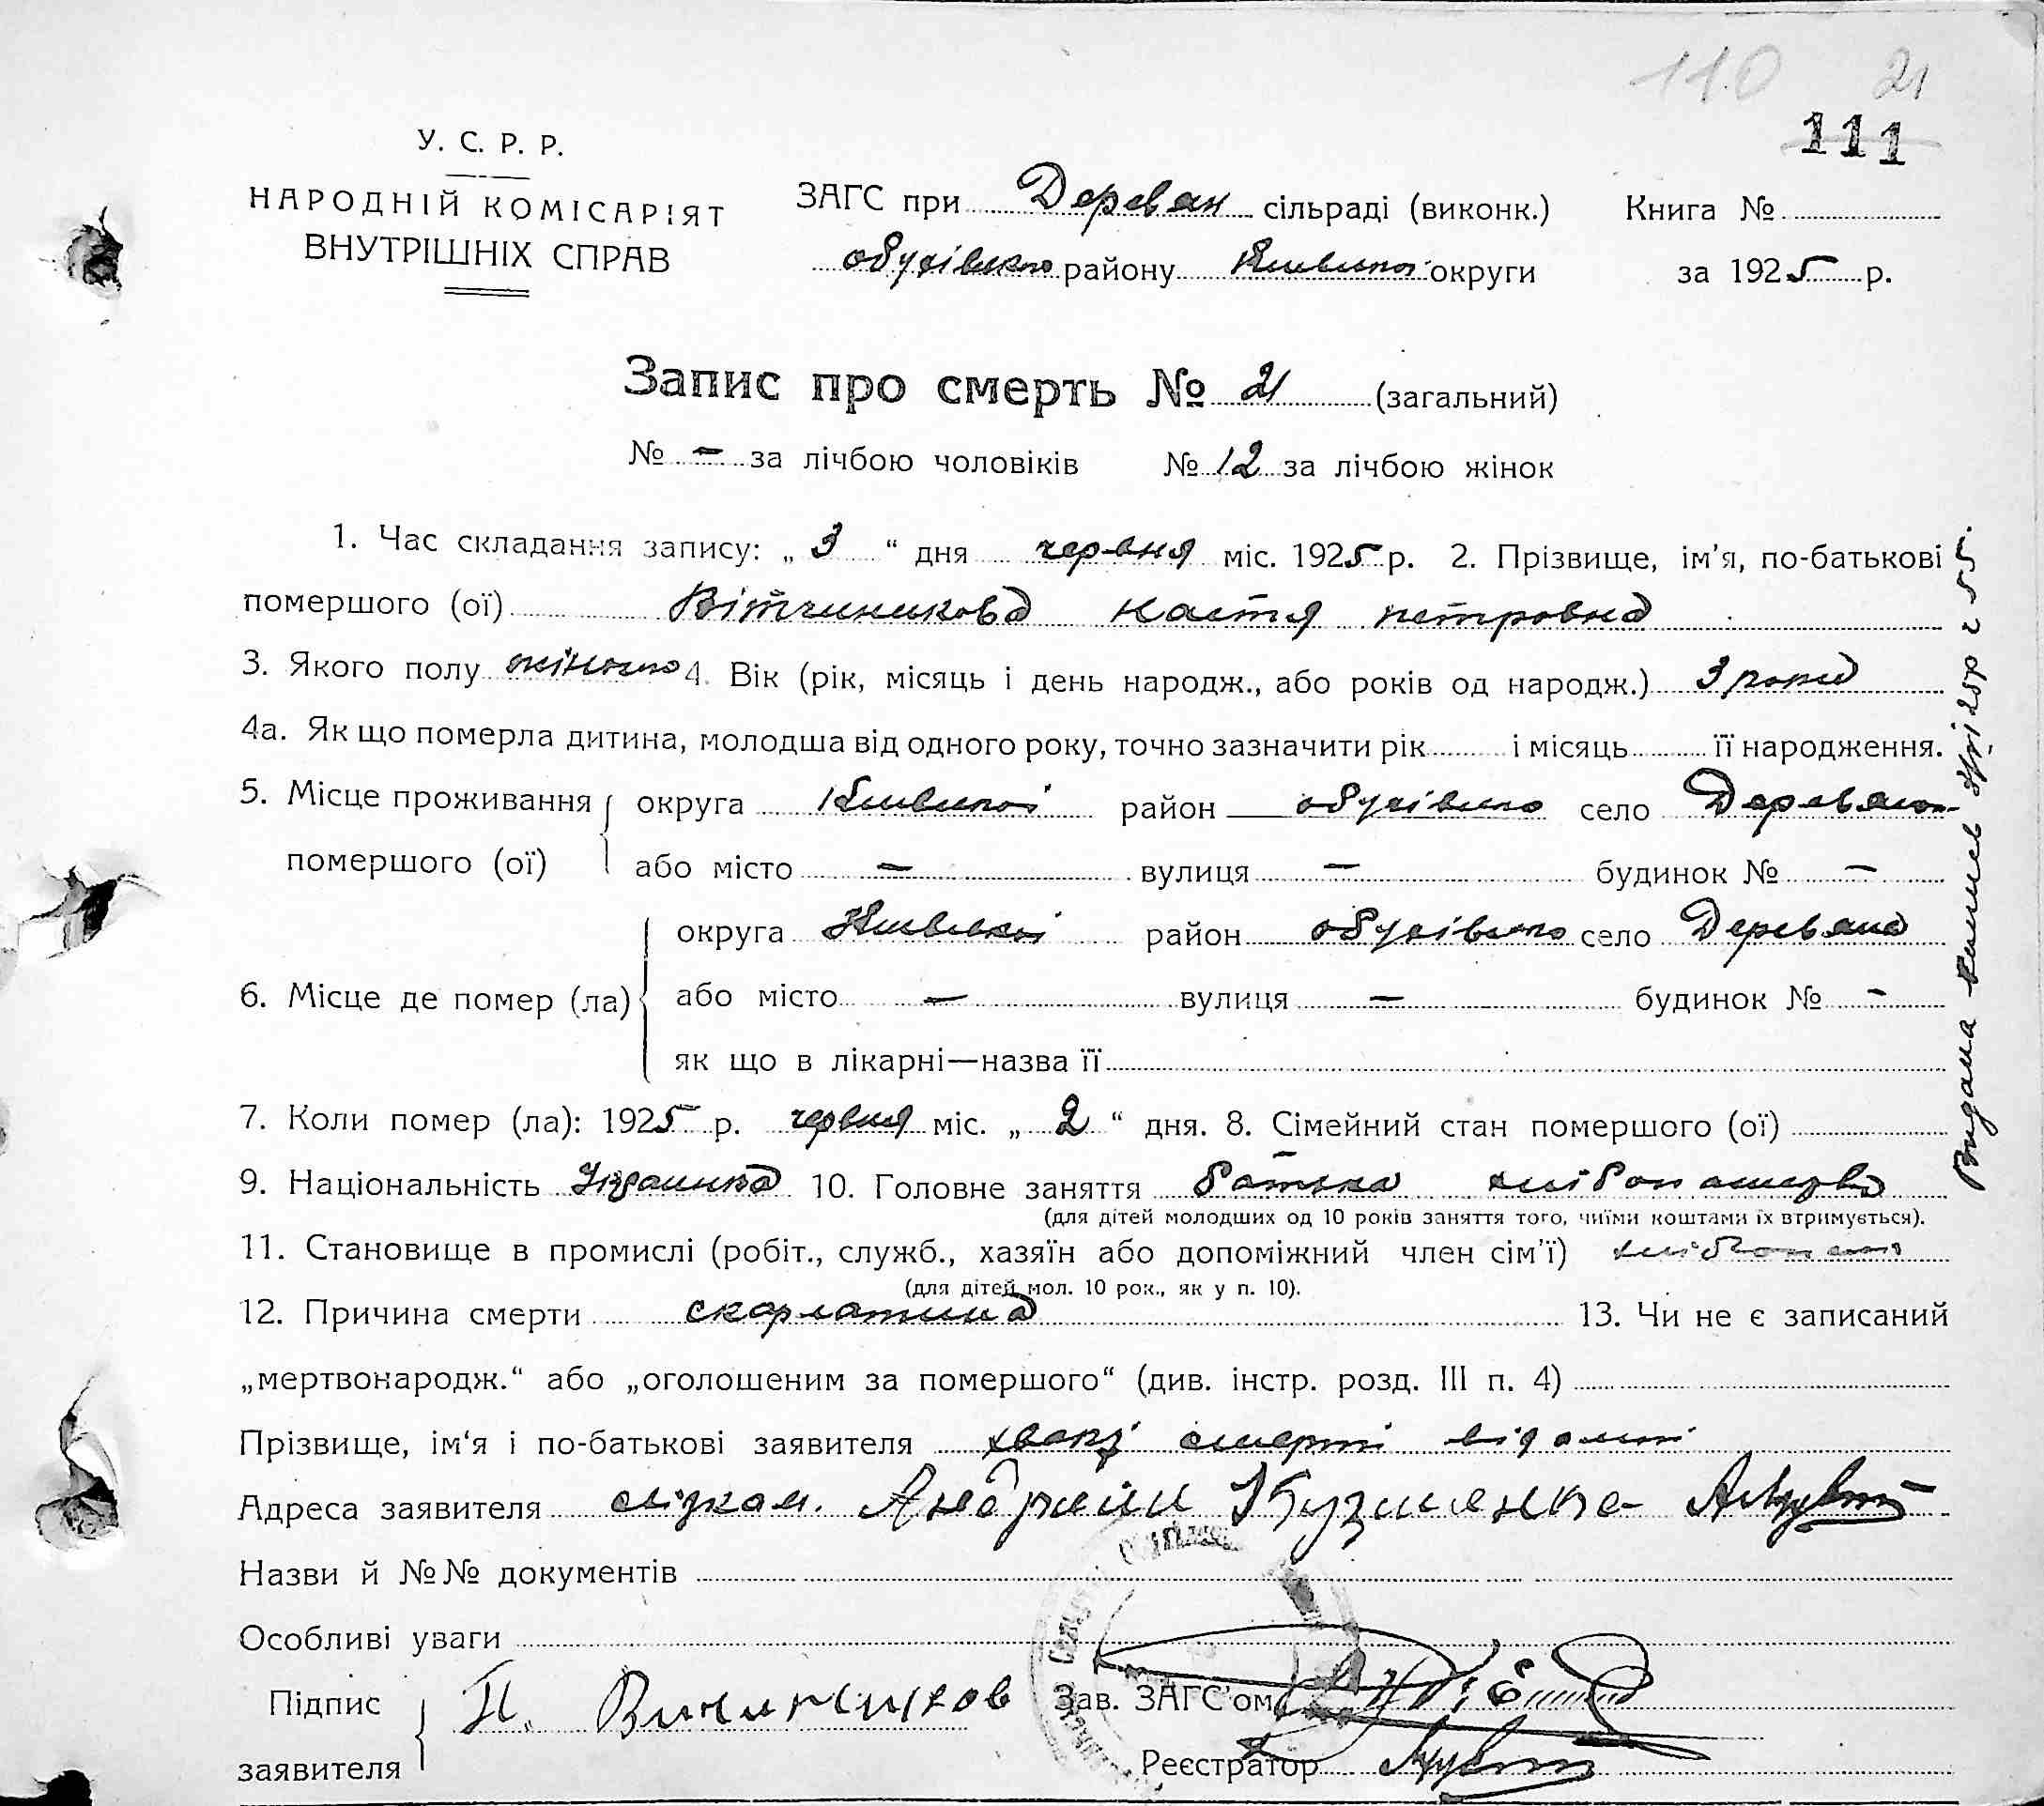 110 21
111
У. С. Р. Р.
НАРОДНІЙ КОМІСАРІЯТ
ВНУТРІШНІХ СПРАВ
ЗАГС при Деревян сільраді (виконк.) Книга №
обухівского району Київської округи за 1925 р.
Запис про смерть № 21 (загальний)
№ – за лічбою чоловіків № 12 за лічбою жінок
1. Час складання запису: „ 3 “ дня червня міс. 1925 р. 2. Прізвище, ім’я, по-батькові
помершого (ої) Вітчиникова Настя петровна
3. Якого полу жіночо 4. Вік (рік, місяць і день народж., або років од народж.) 3 роки
4а. Як що померла дитина, молодша від одного року, точно зазначити рік і місяць її народження.
5. Місце проживання округа Київської район обухівсько село
помершого (ої) або місто – вулиця – будинок № –
округа Київської район обухівсько село Деревяна
6. Місце де помер (ла) або місто – вулиця – будинок № –
як що в лікарні—назва її
7. Коли помер (ла): 1925 р. червня міс. „ 2 “ дня. 8. Сімейний стан помершого (ої)
9. Національність Українка 10. Головне заняття батька хліборобство
(для дітей молодших од 10 років заняття того, чиїми коштами їх втримується).
11. Становище в промислі (робіт., служб., хазяїн або допоміжний член сім’ї)
(для дітей мол. 10 рок., як у п. 10).
12. Причина смерти скарлатина 13. Чи не є записаний
„мертвонародж.“ або „оголошеним за помершого“ (див. інстр. розд. III п. 4)
Прізвище, ім‘я і по-батькові заявителя смерті
Адреса заявителя Андрій Кузменко
Назви й №№ документів
Особливі уваги
Підпис
заявителя П.
Зав. ЗАГС’ом
Реєстратор
Видана